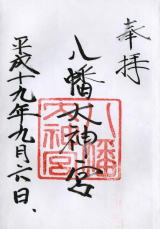 奉拝
八幡大神宮
八幡
大神宮
平成十九年九月六日、